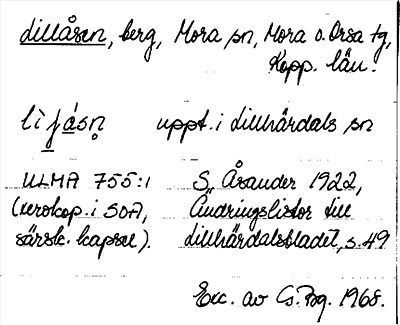 Lillåsen, berg, Mora sn, Mora o. Orsa tg,
Kopp. län.
li jásn̥ uppt. i Lillhärdals sn
ULMA 755:1 S. Åsander 1922,
(xerokop. i SOA, Ändringslistor till
särsk. kapsel). Lillhärdalsbladet, s. 49
Exc. av Cs. Bg. 1968.